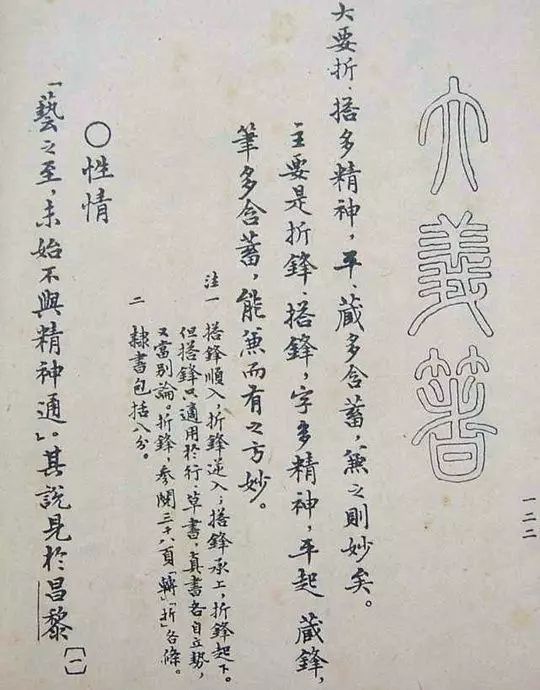 一二二
大義箸
大要折、搭多精神，平、藏多含蓄，兼之則妙矣。
主要是折鋒、搭鋒，字多精神，平起 藏鋒，
筆多含蓄，能兼而有之方妙。
注一 搭鋒順入，折鋒逆入；搭鋒承上，折鋒起下。
但搭鋒只適用於行、草書，真書各自立勢，
又當別論。折鋒參閱頁「轉」「折」各條。
二 隸書包括八分。
〇性情
「藝之至，未始不與精神通」。其說見於昌黎〔一〕